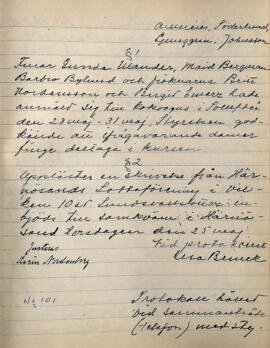 Söderlund,
Ljunggren, Johnsson
§1
Fruar Gunvda Ulander, Maid Bergman
Barbro Bylund och fröknarna Britt
Nordensson och Birgit Ewerz hade
anmält sig till kokkurs i Sollefteå
den 28 maj - 31 maj. Styrelsen god-
kände att ifrågavarande damer
finge deltaga i kursen
§2
Upplästes en skrivelse från Här-
nösands Lottaförening i vil-
ken 10 st Sundsvallslottor in-
bjöds till samkväm i Härnö-
sand torsdagen den 25 maj.
Justeras
Vid protokollet
Karin Nordenberg
Nº 101
Protokoll hållet
vid sammanträde
(telefon) med sty-